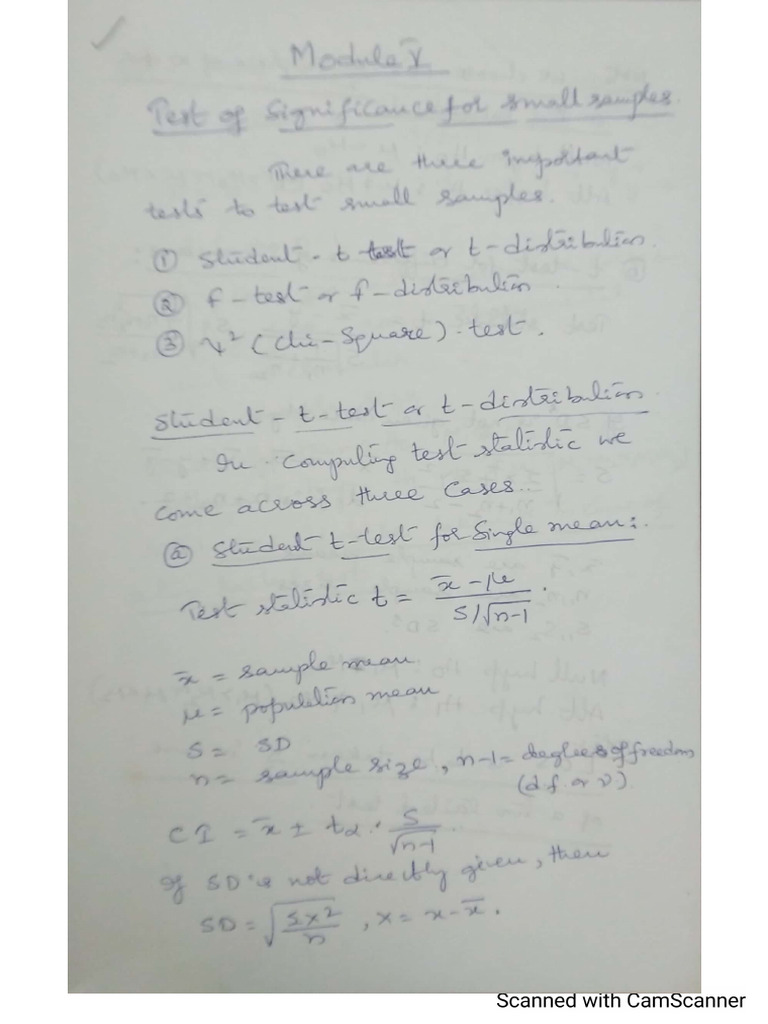 Module V
Test of Significance for small samples.
There are three important
tests to test small samples.
① Student - t test or t - distribution.
② f - test or f - distribution.
③ χ² (Chi - Square) - test.
Student - t - test or t - distribution.
In computing test statistic we
come across three cases..
ⓐ Student t-test for Single mean:.
Test statistic t = x̄ - μ / S/√n-1.
x̄ = sample mean
μ = population mean
S = SD
n = sample size, n-1 = degrees of freedom
(d f. or ν).
C I = x̄ ± tα . S/√n-1.
If SD is not directly given, then
SD = √Σx²/n , x = x - x̄.
Scanned with CamScanner